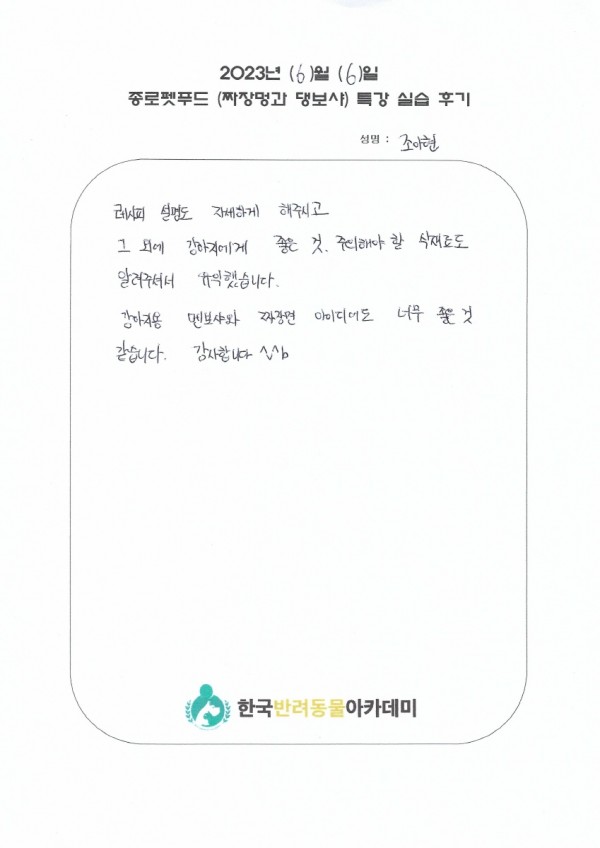 2023년 (6)월 (6)일
종로펫푸드 (짜장멍과 댕보샤) 특강 실습 후기
성명 : 조아현
레시피 설명도 자세하게 해주시고
그 외에 강아지에게 좋은 것, 주의해야 할 식재료도
알려주셔서 유익했습니다.
강아지용 멘보샤와 짜장면 아이디어도 너무 좋은 것
같습니다. 감사합니다 ^^b
한국반려동물아카데미